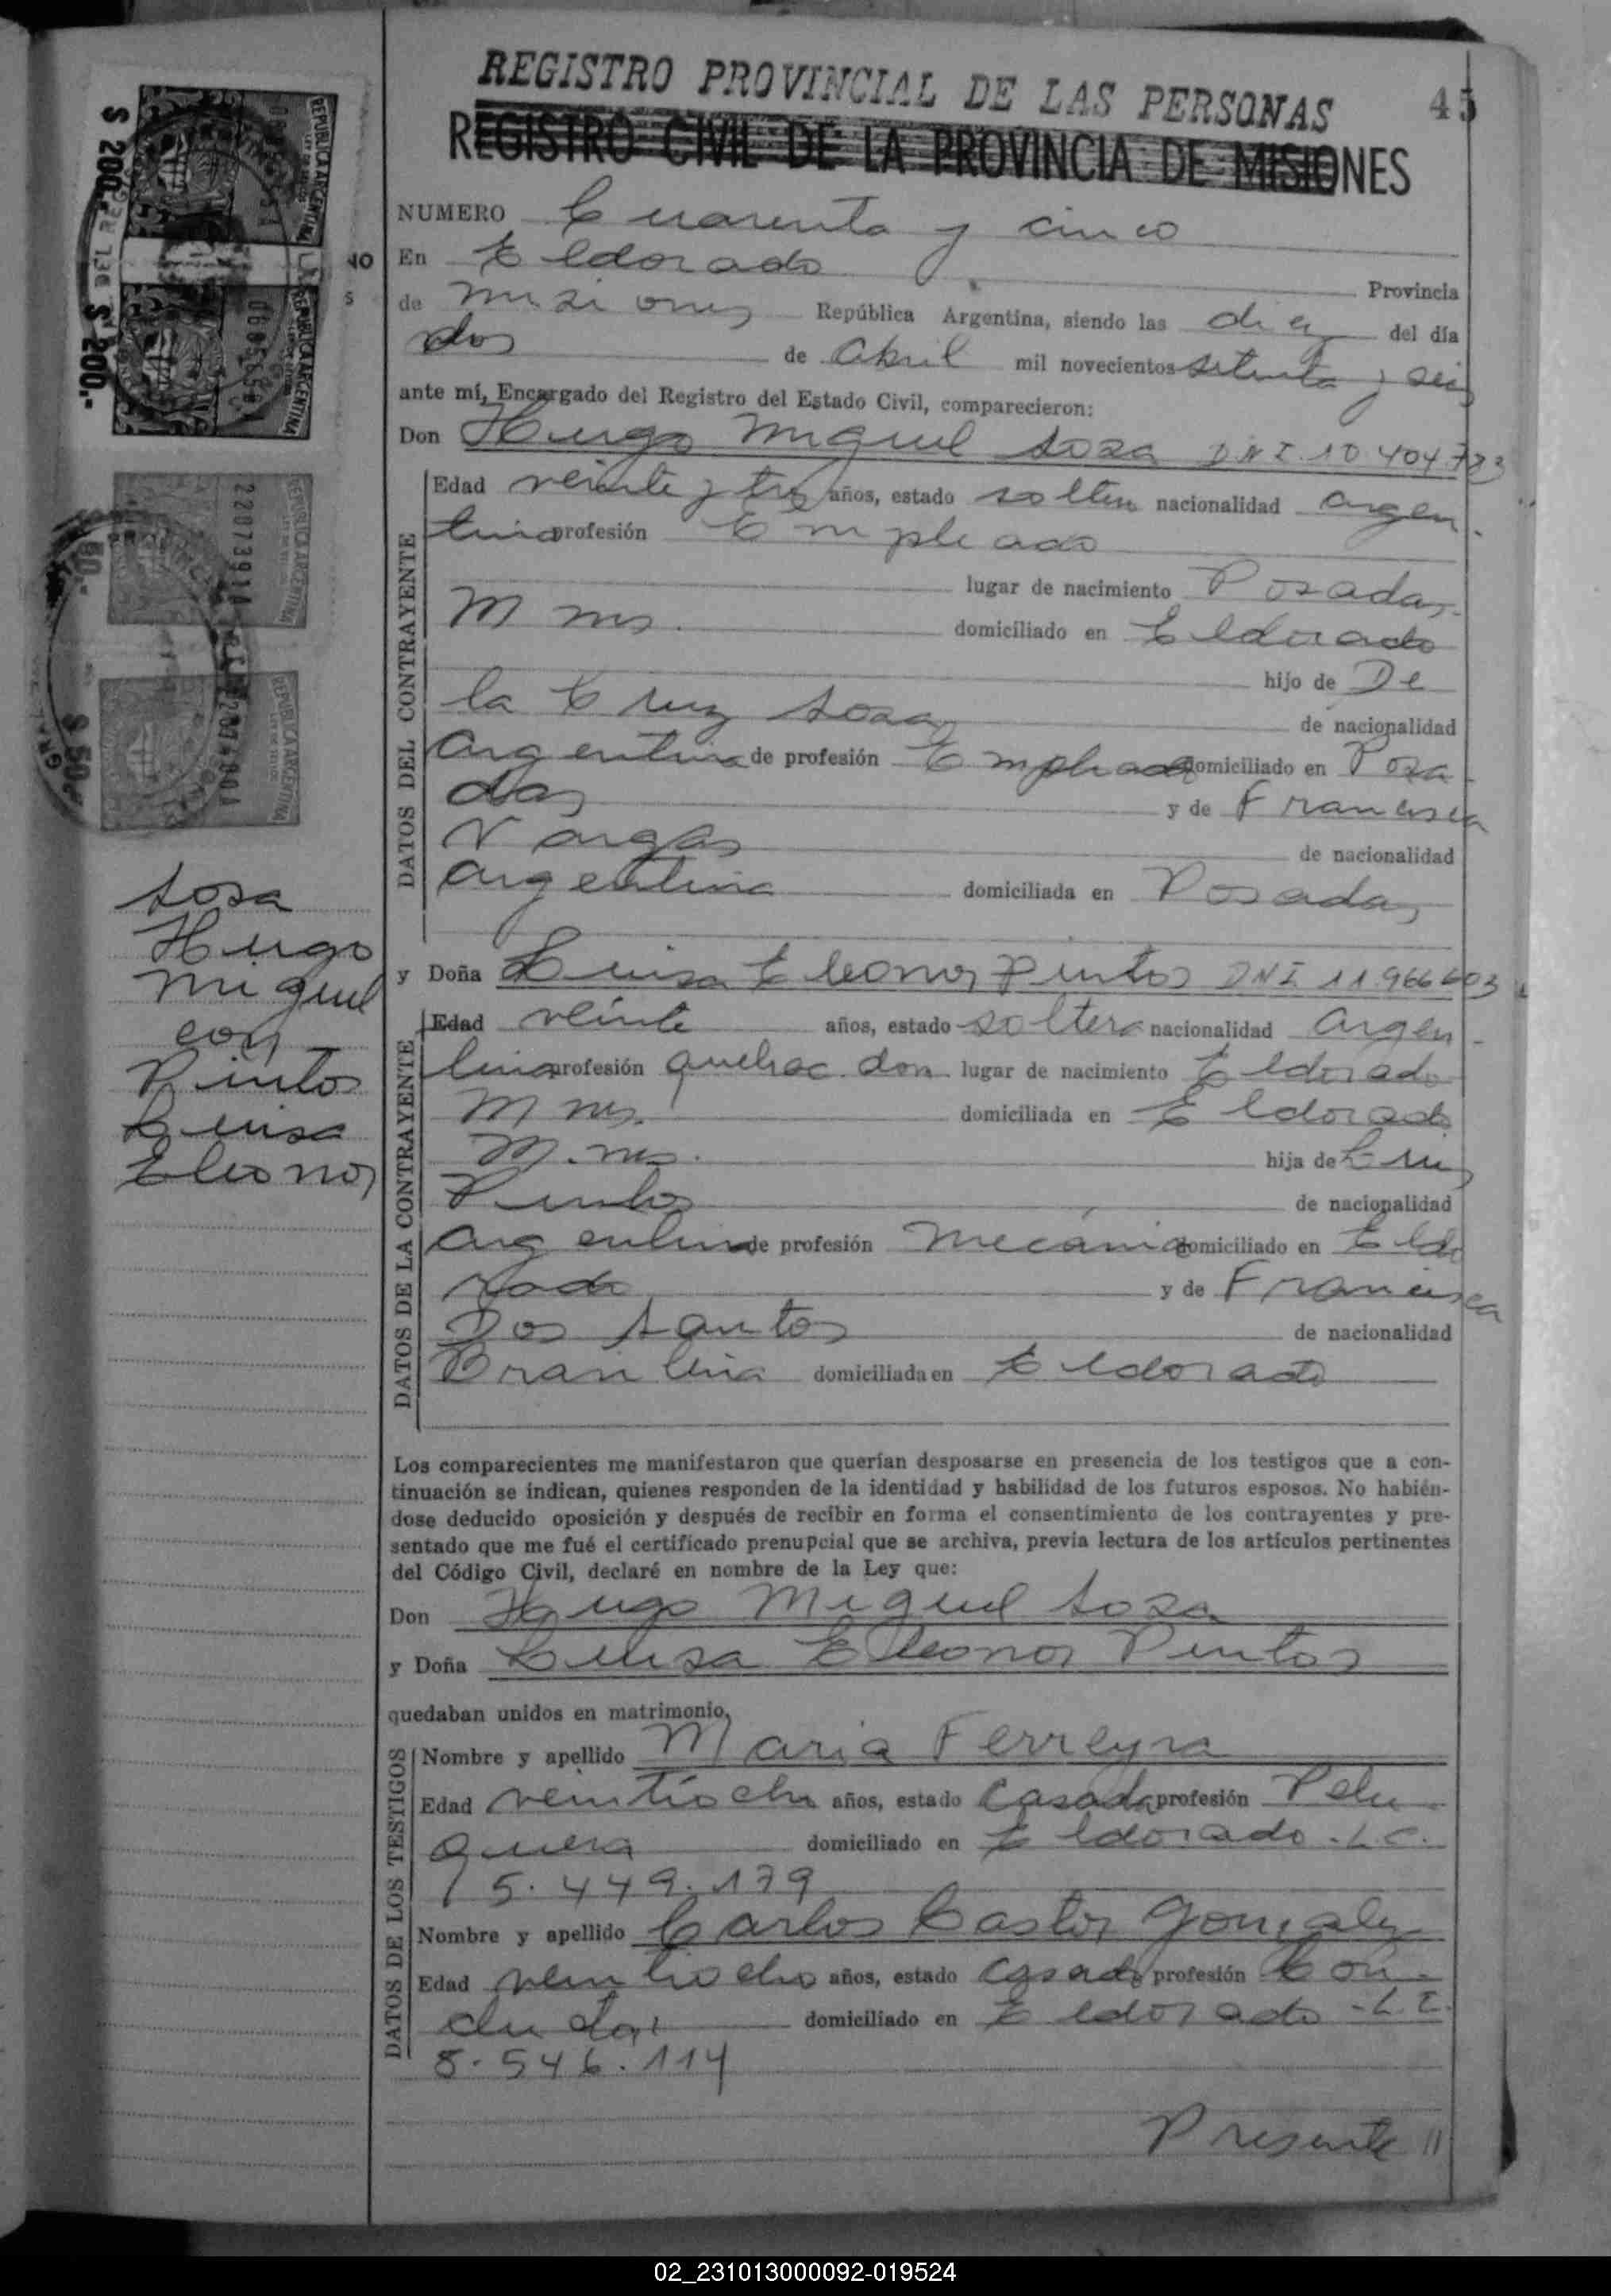 REGISTRO PROVINCIAL DE LAS PERSONAS 45
REGISTRO CIVIL DE LA PROVINCIA DE MISIONES
NUMERO Cuarenta y cinco
En Eldorado Provincia
de Misiones República Argentina, siendo las diez del día
dos de Abril mil novecientos setenta y seis
ante mí, Encargado del Registro del Estado Civil, comparecieron:
Don Hugo Miguel Sosa DNI. 10.404.783
Edad veinte y tres años, estado soltero nacionalidad argen-
tina profesión Empleado
lugar de nacimiento Posadas-
Mnes. domiciliado en Eldorado
hijo de De
la Cruz Sosa de nacionalidad
argentina de profesión Empleado domiciliado en Posa-
das y de Francisca
Vargas de nacionalidad
argentina domiciliada en Posadas
y Doña Luisa Eleonor Pintos DNI 11.966.603
Edad veinte años, estado soltera nacionalidad argen-
tina profesión quehac. dom. lugar de nacimiento Eldorado
Mnes. domiciliada en Eldorado
Mnes. hija de Luis
Pintos de nacionalidad
argentina de profesión mecánico domiciliado en Eldo
rado y de Francisca
Dos Santos de nacionalidad
Brasilina domiciliada en Eldorado
Los comparecientes me manifestaron que querían desposarse en presencia de los testigos que a con-
tinuación se indican, quienes responden de la identidad y habilidad de los futuros esposos. No habién-
dose deducido oposición y después de recibir en forma el consentimiento de los contrayentes y pre-
sentado que me fué el certificado prenupcial que se archiva, previa lectura de los artículos pertinentes
del Código Civil, declaré en nombre de la Ley que:
Don Hugo Miguel Sosa
y Doña Luisa Eleonor Pintos
quedaban unidos en matrimonio,
Nombre y apellido Maria Ferreyra
Edad veintiocho años, estado Casada profesión Pelu-
quera domiciliado en Eldorado. L.C.
5.449.179
Nombre y apellido Carlos Castor Gonzalez
Edad veintiocho años, estado Casado profesión Con-
ductor domiciliado en Eldorado - L.E.
8.546.114
Presente //
DATOS DEL CONTRAYENTE
DATOS DE LA CONTRAYENTE
DATOS DE LOS TESTIGOS
Sosa
Hugo
Miguel
con
Pintos
Luisa
Eleonor
$ 200.-
$ 200.-
REPUBLICA ARGENTINA
REPUBLICA ARGENTINA
REPUBLICA ARGENTINA
REPUBLICA ARGENTINA
50.-
$ 50.-
02_231013000092-019524